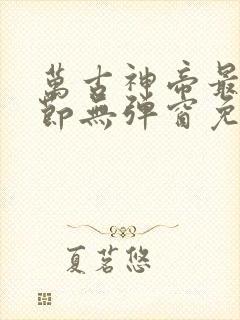 萬古神帝最
節無彈窗免
夏茗悠